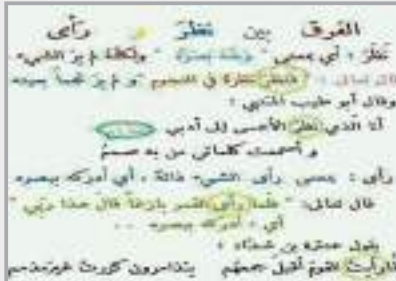 الفرق بين نظر و رأى
نظر : أي بمعنى " وجّه بصره " ولكنّه لم ير الشيء.
قال تعالى : " فنظر نظرة في النجوم " و لم ير نجماً بعينه
وقال أبو طيب المتنبي :
أنا الذي نظر الأعمى إلى أدبي
و أسمعت كلماتي من به صمم
رأى : بمعنى رأى الشيء ذاته ، أي أدركه ببصره.
قال تعالى: " فلما رأى القمر بازغاً قال هذا ربّي "
أي : أدركه ببصره ..
يقول عنترة بن شداد :
لمّا رأيت القوم أقبل جمعهم يتذامرون كررت غير مذمم